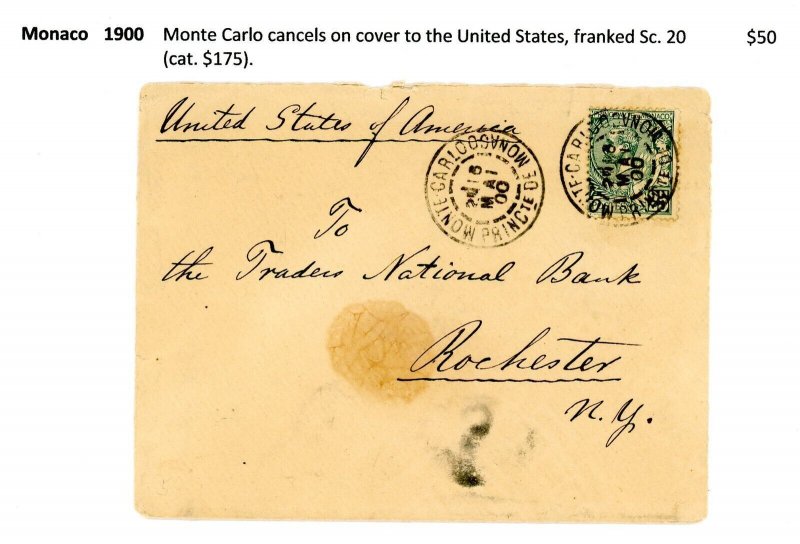 Monaco 1900 Monte Carlo cancels on cover to the United States, franked Sc. 20 $50
(cat. $175).
United States of America
MONTE-CARLO PRINCTE DE MONACO
16
MAI
00
MONTE-CARLO PRINCTE DE MONACO
16
MAI
00
To
the Traders National Bank
Rochester
N.Y.